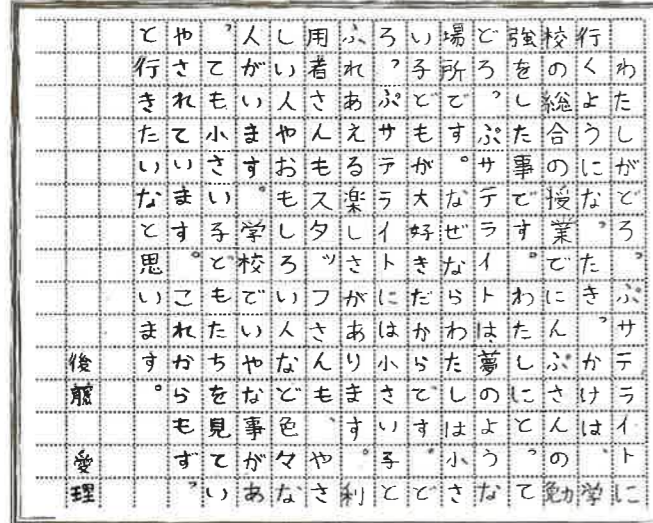 わたしがどろっぷサテライトに
行くようになったきっかけは、学
校の総合の授業でにんぷさんの勉
強をした事です。わたしにとって
どろっぷサテライトは夢のような
場所です。なぜならわたしは小さ
い子どもが大好きだからです。ど
ろっぷサテライトには小さい子と
ふれあえる楽しさがあります。利
用者さんもスタッフさんも、やさ
しい人やおもしろい人など色々な
人がいます。学校でいやな事があ
っても小さい子どもたちを見てい
やされています。これからもずっ
と行きたいなと思います。
後藤 愛理